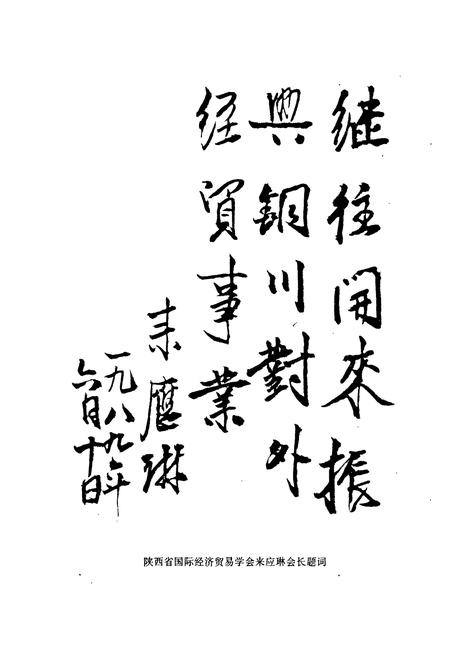 继往開來振
興銅川對外
经貿事業
来應琳
一九八九年
六月十日
陕西省国际经济贸易学会来应琳会长题词